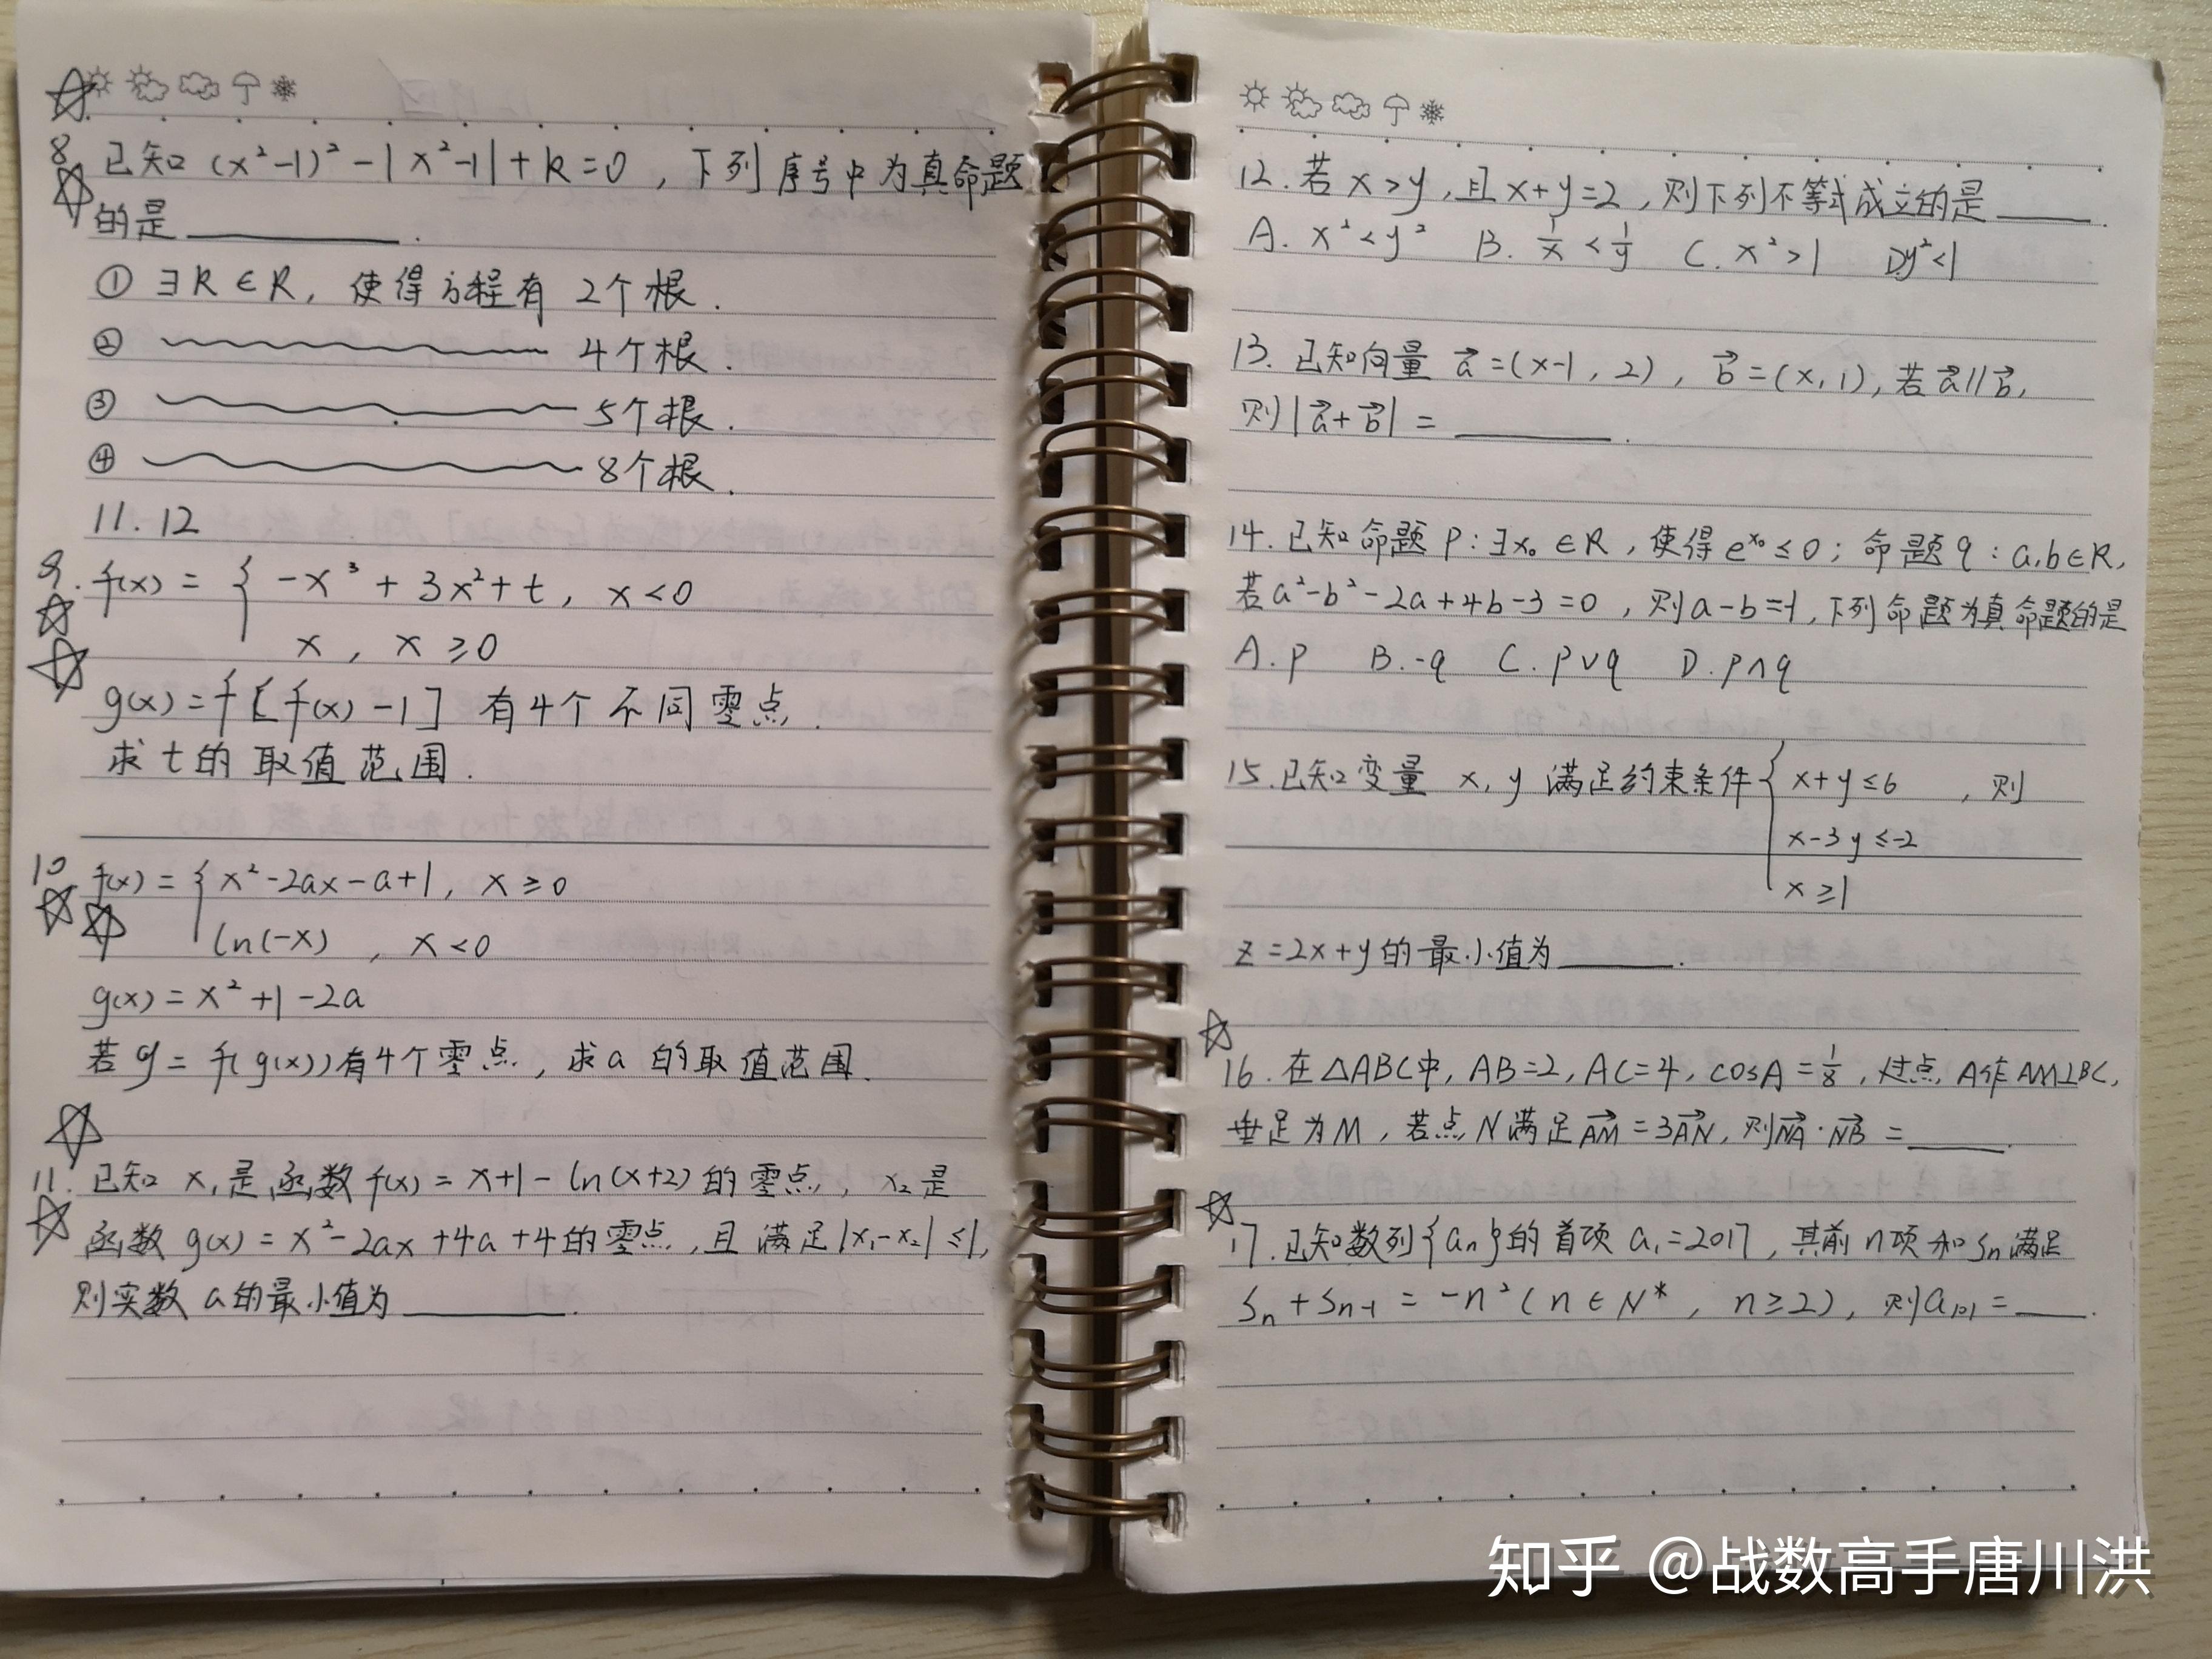 8. 已知 (x²-1)²-|x²-1|+k=0，下列序号中为真命题
的是______.
① ∃k∈R，使得方程有 2个根.
② 4个根.
③ 5个根.
④ 8个根.
11.12
9. f(x) = { -x³+3x²+t，x<0
x，x≥0
g(x)=f[f(x)-1] 有4个不同零点.
求t的取值范围.
10 f(x) = { x²-2ax-a+1，x≥0
ln(-x)，x<0
g(x)=x²+1-2a
若y=f(g(x))有4个零点，求a的取值范围.
11. 已知 x₁是函数f(x)=x+1-ln(x+2)的零点，x₂是
函数 g(x)=x²-2ax+4a+4的零点，且满足|x₁-x₂|≤1，
则实数 a的最小值为______.
12. 若x>y，且x+y=2，则下列不等式成立的是____.
A. x²<y² B. 1/x<1/y C. x²>1 D y²<1
13. 已知向量 a⃗=(x-1，2)，b⃗=(x,1)，若a⃗//b⃗，
则|a⃗+b⃗|=______.
14. 已知命题 p:∃x₀∈R，使得e^x₀≤0；命题q：a,b∈R，
若a²-b²-2a+4b-3=0，则a-b=-1，下列命题为真命题的是
A.p B.-q C.p∨q D.p∧q
15. 已知变量 x,y 满足约束条件{ x+y≤6，则
x-3y≤-2
x≥1
z=2x+y的最小值为____.
16. 在△ABC中，AB=2，AC=4，cosA=1/8，过点A作AM⊥BC，
垂足为M，若点N满足AM⃗=3AN⃗，则NA⃗·NB⃗=____.
17. 已知数列{aₙ}的首项 a₁=2017，其前n项和Sₙ满足
Sₙ+Sₙ₋₁=-n²(n∈N*，n≥2)，则a₁₀₁=____.
知乎 @战数高手唐川洪